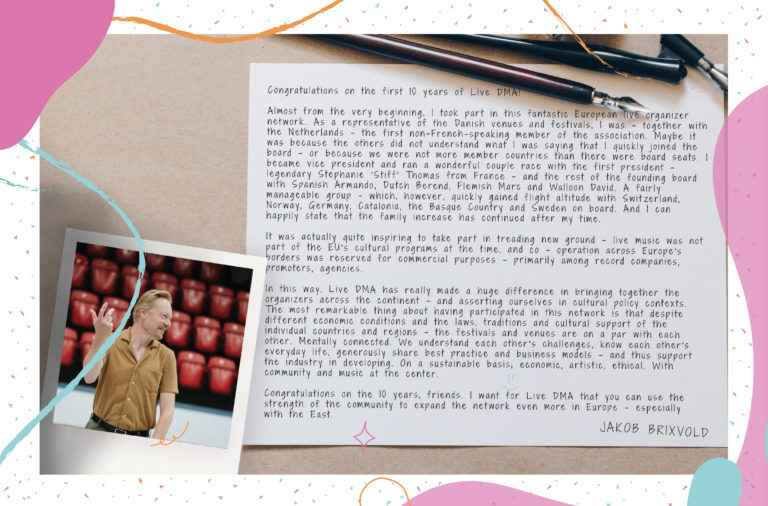 Congratulations on the first 10 years of Live DMA!
Almost from the very beginning, I took part in this fantastic European live organizer
network. As a representative of the Danish venues and festivals, I was - together with
the Netherlands - the first non-French-speaking member of the association. Maybe it
was because the others did not understand what I was saying that I quickly joined the
board - or because we were not more member countries than there were board seats. I
became vice president and ran a wonderful couple race with the first president -
legendary Stephanie 'Stiff' Thomas from France - and the rest of the founding board
with Spanish Armando, Dutch Berend, Flemish Marc and Walloon David. A fairly
manageable group - which, however, quickly gained flight altitude with Switzerland,
Norway, Germany, Catalonia, the Basque Country and Sweden on board. And I can
happily state that the family increase has continued after my time.
It was actually quite inspiring to take part in treading new ground - live music was not
part of the EU's cultural programs at the time, and co - operation across Europe's
borders was reserved for commercial purposes - primarily among record companies,
promoters, agencies.
In this way, Live DMA has really made a huge difference in bringing together the
organizers across the continent - and asserting ourselves in cultural policy contexts.
The most remarkable thing about having participated in this network is that despite
different economic conditions and the laws, traditions and cultural support of the
individual countries and regions - the festivals and venues are on a par with each
other. Mentally connected. We understand each other's challenges, know each other's
everyday life, generously share best practice and business models - and thus support
the industry in developing. On a sustainable basis, economic, artistic, ethical. With
community and music at the center.
Congratulations on the 10 years, friends. I want for Live DMA that you can use the
strength of the community to expand the network even more in Europe - especially
with the East.
JAKOB BRIXVOLD